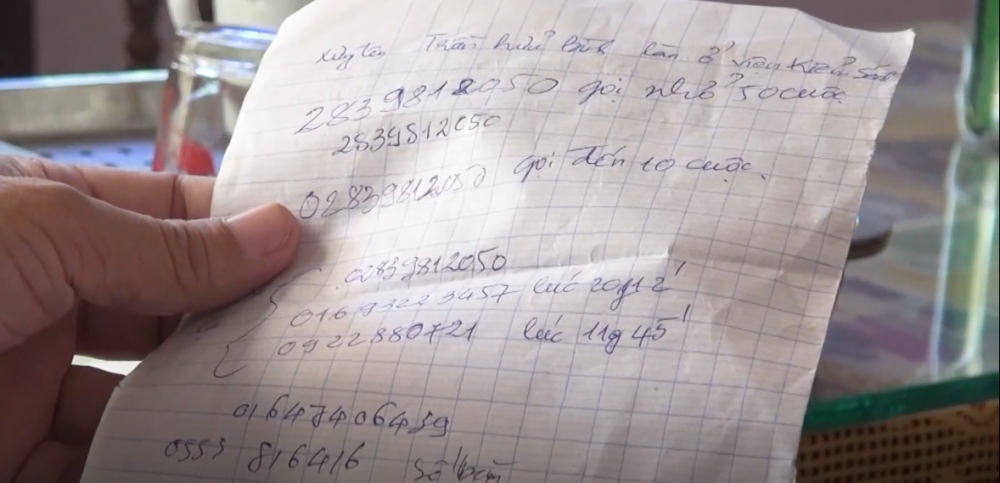 xưng tên Trần hữu Bình làm ở viện Kiểm Sát
2839812050 gọi nhỡ 50 cuộc
2839812050
02839812050 gọi đến 10 cuộc.
02839812050
01693223457 lúc 20g12'
0922880721 lúc 11g45'
01647406439
0553 816416 số bàn